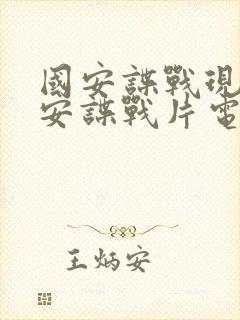 國安諜戰現
安諜戰片電
王炳安